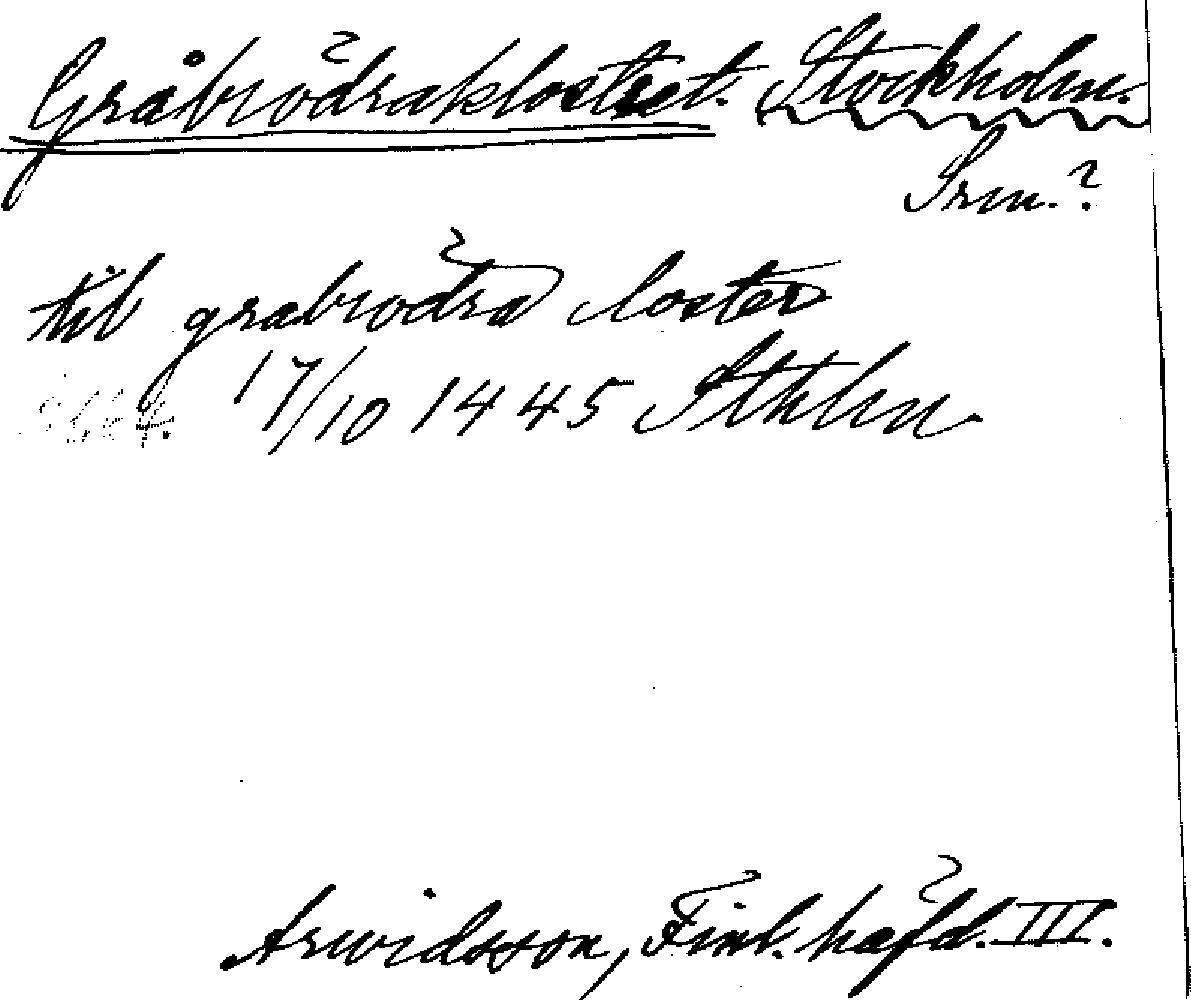 Gråbrödraklostret. Stockholm.
Srm.?
till grabrödra closter
17/10 1445 Sthlm
Arwidsson, Finl. häfd. III.